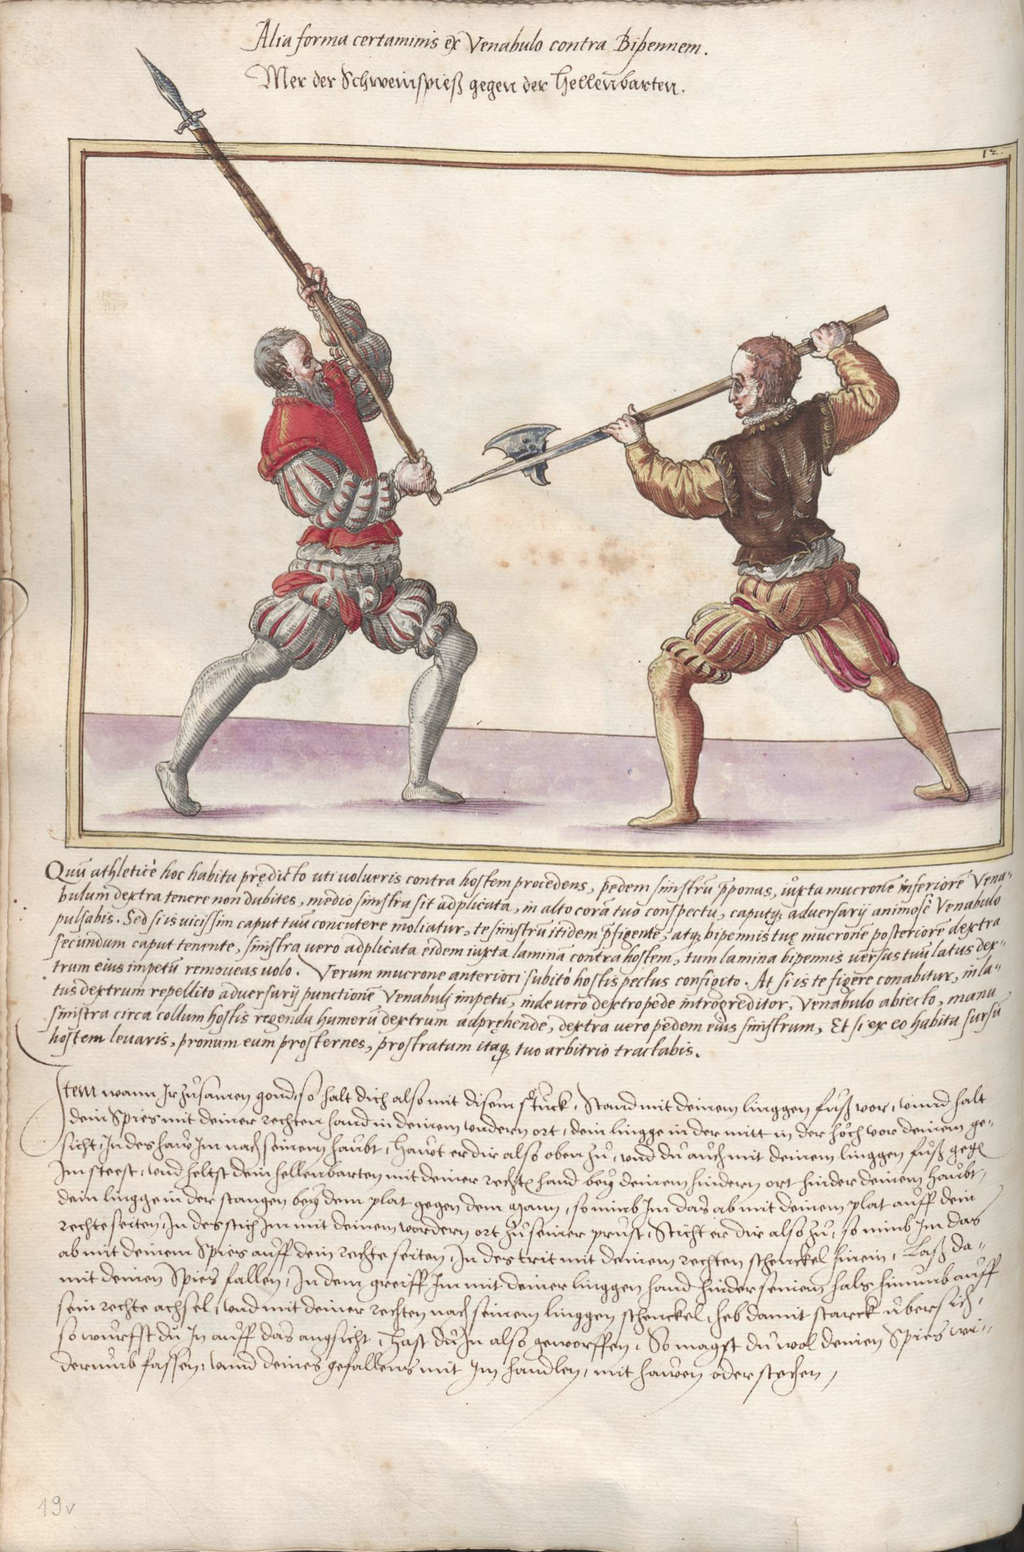 Alia forma certaminis ex Venabulo contra Bipennem.
Mer der Schweinspieß gegen der Hellenbarten.
12.
Quũ athleticè hoc habitu prędicto uti volueris contra hostem procedens, pedem sinistrũ p̃ponas, iuxta mucronẽ inferiorẽ Vena-
bulum dextra tenere non dubites, medio sinistra sit adplicata, in alto corã tuo conspectu, caputq; adversarij animosè Venabulo
pulsabis. Sed si is vicissim caput tuũ concutere moliatur, te sinistrũ itidem p̃figente, atq; bipennis tuę mucronẽ posteriorẽ dextra
secundum caput tenente, sinistra vero adplicata eidem iuxta laminã contra hostem, tum lamina bipennis versus tuũ latus dex-
trum eius impetũ removeas volo. Verum mucrone anteriori subitò hostis pectus configito. At si is te figere conabitur, in la-
tus dextrum repellito adversarij punctionẽ Venabulj impetu, inde verò dextro pede introgreditor, Venabulo abiecto, manu
sinistra circa collum hostis regenda humerũ dextrum adprehende, dextra vero pedem eius sinistrum, Et si ex eo habitu sursũ
hostem levaris, pronum eum prosternes, prostratum itaq; tuo arbitrio tractabis.
Item wann Ir zusamen gond, so halt dich also mit disem stuck, Stand mit deinem linggen fuß vor, unnd halt
dein Spies mit deiner rechten hand in deinem undern ort, dein lingge in der mitt in der höch vor deinem ge-
sicht, In des haw Im nach seinem haubt, Hawt er dir also oben zu, unnd du auch mit deinem linggen fuß gegẽ
Im steest, unnd heltst dein hellenbarten mit deiner rechtẽ hand bey deinem hindern ort hinder deinem haubt,
dein lingge in der stangen bey dem plat gegen dem mann, so nimb Im das ab mit deinem plat auff dein
rechte seiten, In des stich Im mit deinem vordern ort zu seiner prust, Sticht er dir also zu, so nimb Im das
ab mit deinem Spies auff dein rechte seiten, In des trit mit deinem rechten schenckel hinein, Laß da-
mit deinen Spies fallen, In dem greiff Im mit deiner linggen hand hinder seinem hals hinumb auff
sein rechte achsel, unnd mit deiner rechten nach seinem linggen schenckel, heb damit starck ubersich,
so wurffst du In auff das angsicht, Hast du In also geworffen, So magst du wol deinen Spies wi-
derumb fassen, unnd deines gefallens mit Im handlen, mit hawen oder stechen,
19v